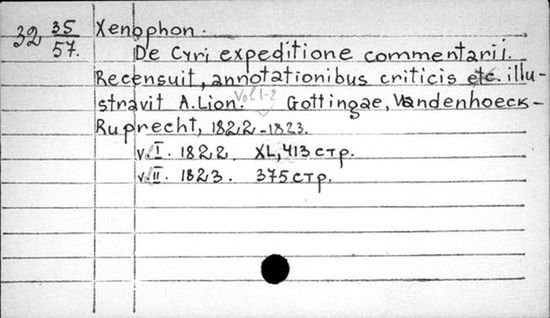 32 35/57. Xenophon.
De Cyri expeditione commentarii.
Recensuit, annotationibus criticis etc. illu-
stravit A. Lion. Vol 1-2 Gottingae, Vandenhoeck-
Ruprecht, 1822-1823.
v. I. 1822. XL, 413 стр.
v. II. 1823. 375 стр.